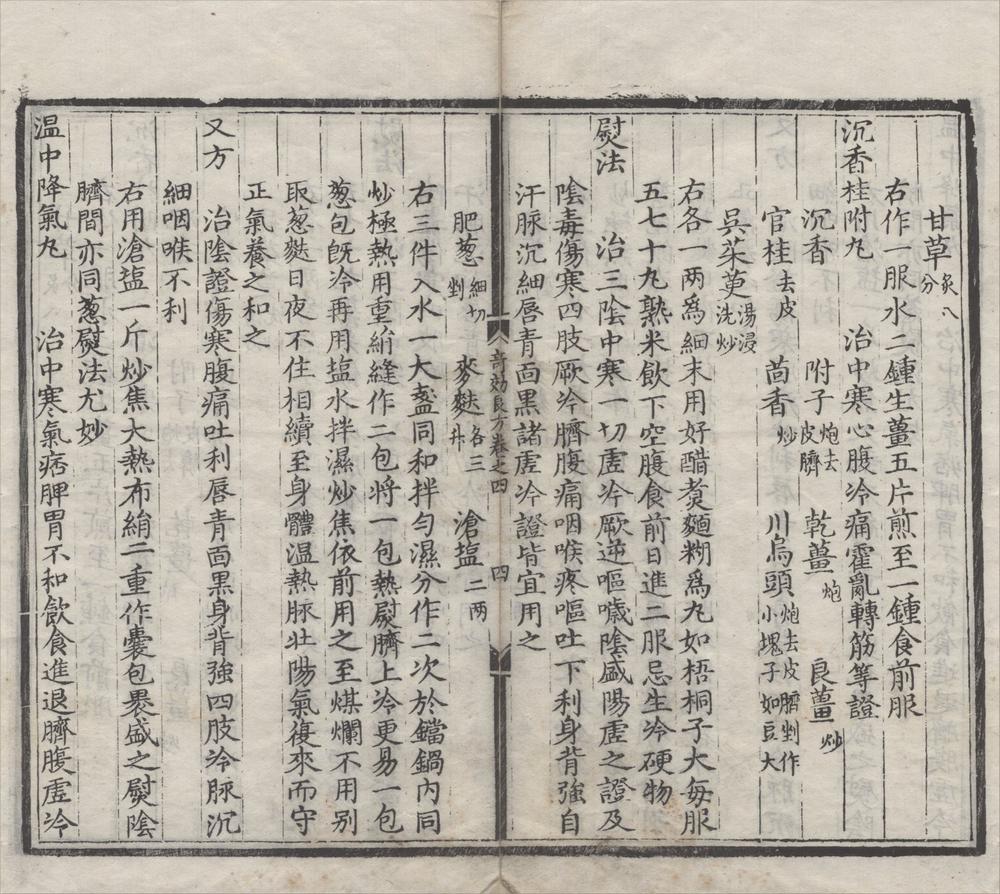 甘草炙八分
右作一服水二鍾生薑五片煎至一鍾食前服
沉香桂附丸　治中寒心腹冷痛霍亂轉筋等證
沉香　附子炮去皮臍　乾薑炮　良薑炒
官桂去皮　茴香炒　川烏頭炮去皮臍剉作小塊子如豆大
吳茱萸湯浸洗炒
右各一两爲細末用好醋煑麵糊爲丸如梧桐子大每服
五七十丸熟米飲下空腹食前日進二服忌生冷硬物
熨法　治三陰中寒一切虛冷厥逆嘔噦陰盛陽虛之證及
陰毒傷寒四肢厥冷臍腹痛咽喉疼嘔吐下利身背強自
汗脈沉細唇青面黑諸虛冷證皆宜用之
奇効良方卷之四　四
肥葱細切剉　麥麩各三升　滄塩二两
右三件入水一大盞同和拌勻濕分作二次於鐺鍋內同
炒極熱用重絹縫作二包將一包熱熨臍上冷更易一包
葱包旣冷再用塩水拌濕炒焦依前用之至煤爛不用别
取葱麩日夜不住相續至身體温熱脈壯陽氣復來而守
正氣養之和之
又方　治陰證傷寒腹痛吐利唇青面黑身背強四肢冷脈沉
細咽喉不利
右用滄塩一斤炒焦大熱布絹二重作囊包褁盛之熨陰
臍間亦同葱熨法尤妙
温中降氣丸　治中寒氣痞脾胃不和飲食進退臍腹虛冷